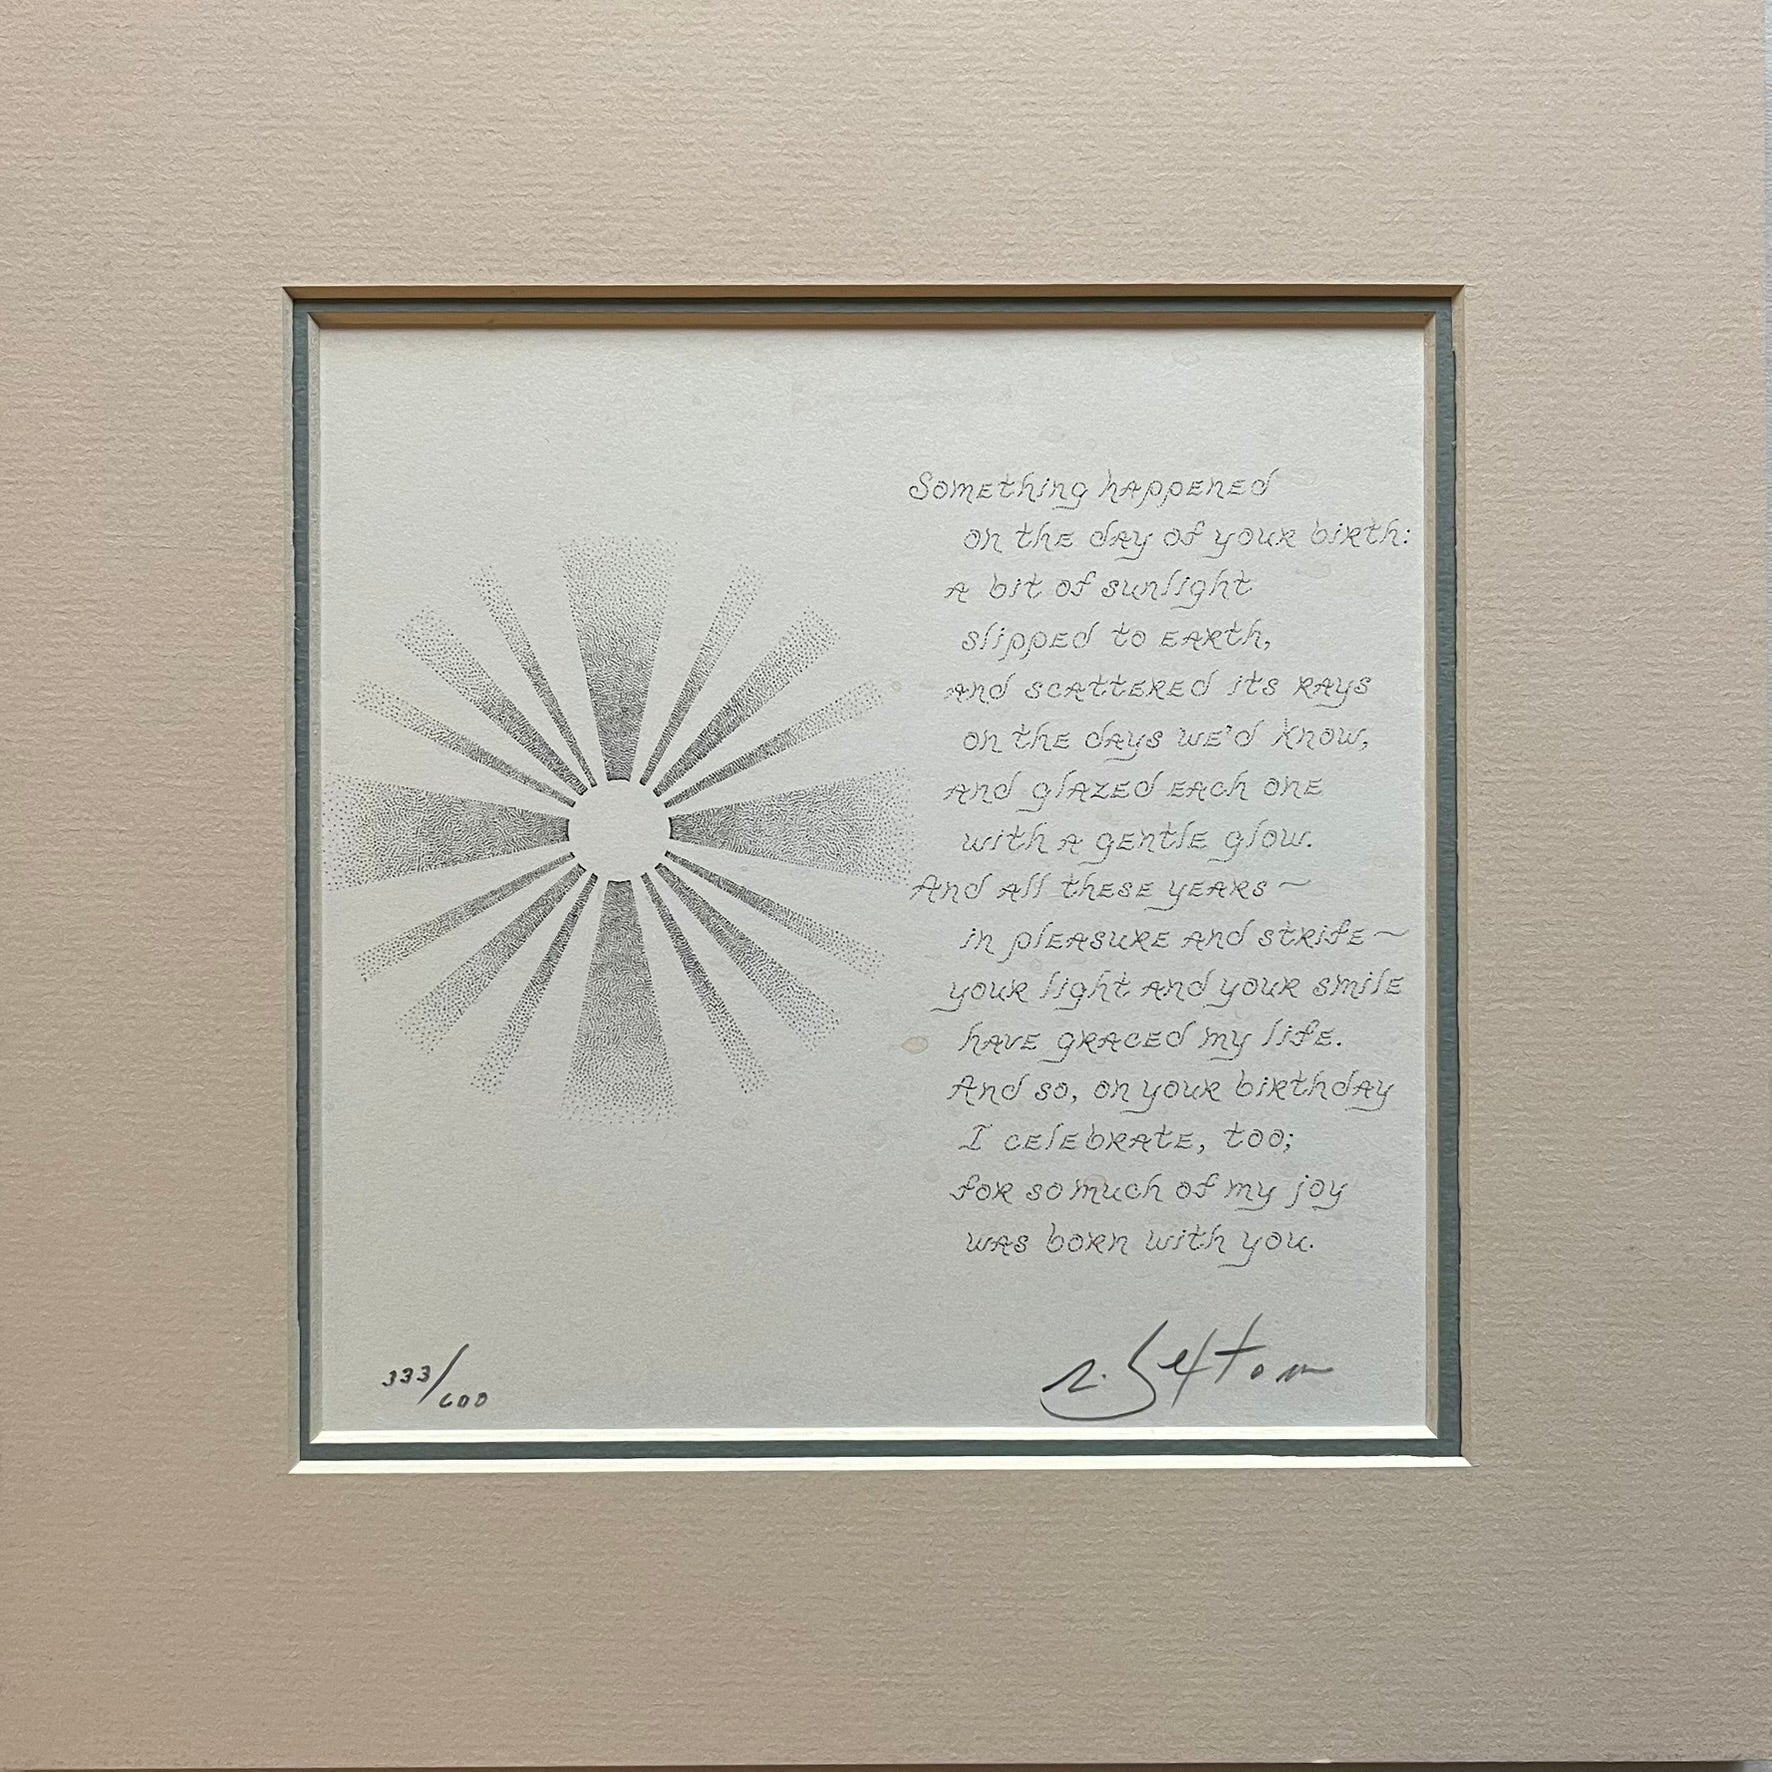 Something happened
on the day of your birth:
A bit of sunlight
slipped to earth,
And scattered its rays
on the days we'd know,
And glazed each one
with a gentle glow.
And all these years ~
in pleasure and strife ~
your light and your smile
have graced my life.
And so, on your birthday
I celebrate, too;
for so much of my joy
was born with you.
333/600